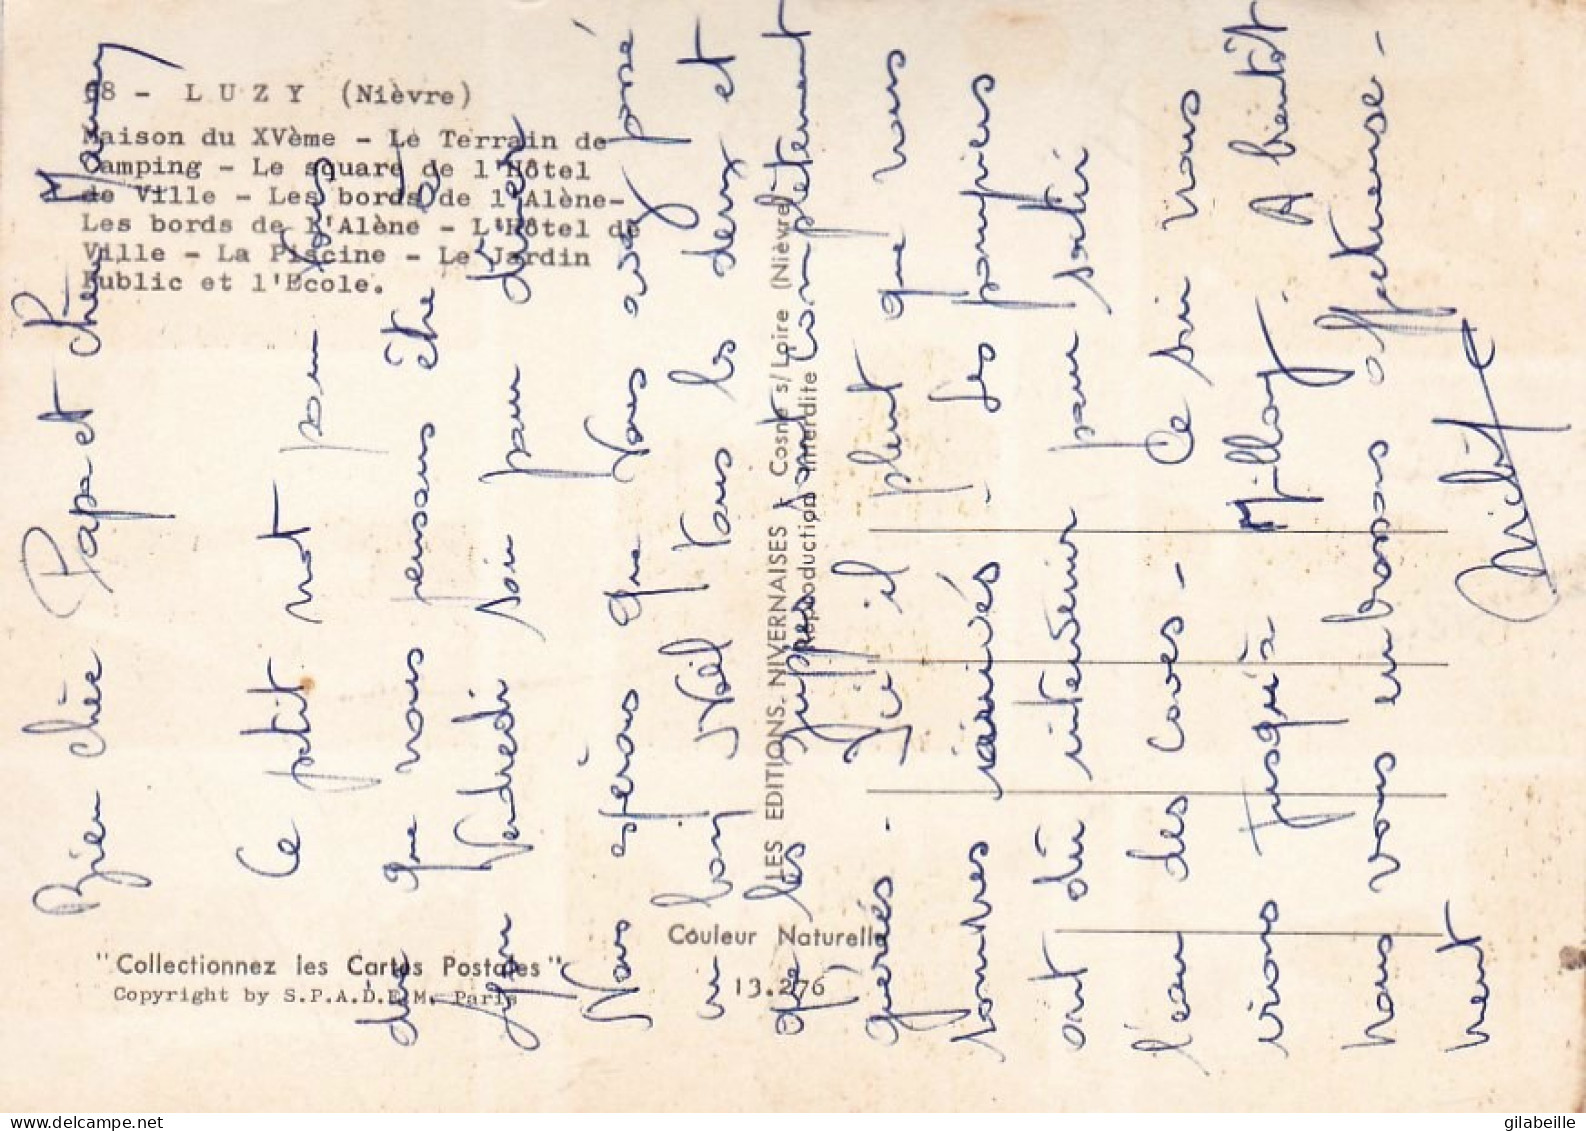 68 - LUZY (Nièvre)
Maison du XVème - Le Terrain de
Camping - Le square de l'Hôtel
de Ville - Les bords de l'Alène-
Les bords de l'Alène - L'Hôtel de
Ville - La Piscine - Le Jardin
Public et l'Ecole.
"Collectionnez les Cartes Postales"
Copyright by S.P.A.D.E.M. Paris
Couleur Naturelle
13.276
LES EDITIONS NIVERNAISES - Cosne s/Loire (Nièvre)
Reproduction interdite
Bien chère Papa et chère Mamy
Ce petit mot pour vous
dire que nous pensons être là
Vendredi soir pour dîner
Nous espérons que vous avez passé
un bon Noël tous les deux et
que les grippes sont complètement
guéries - Ici il pleut que nous
sommes - Les pompiers
ont dû intervenir pour sortir
l'eau des caves - Ce soir nous
irons jusqu'à Millay. A bientôt
nous vous embrassons affectueuse-
ment
gilabeille